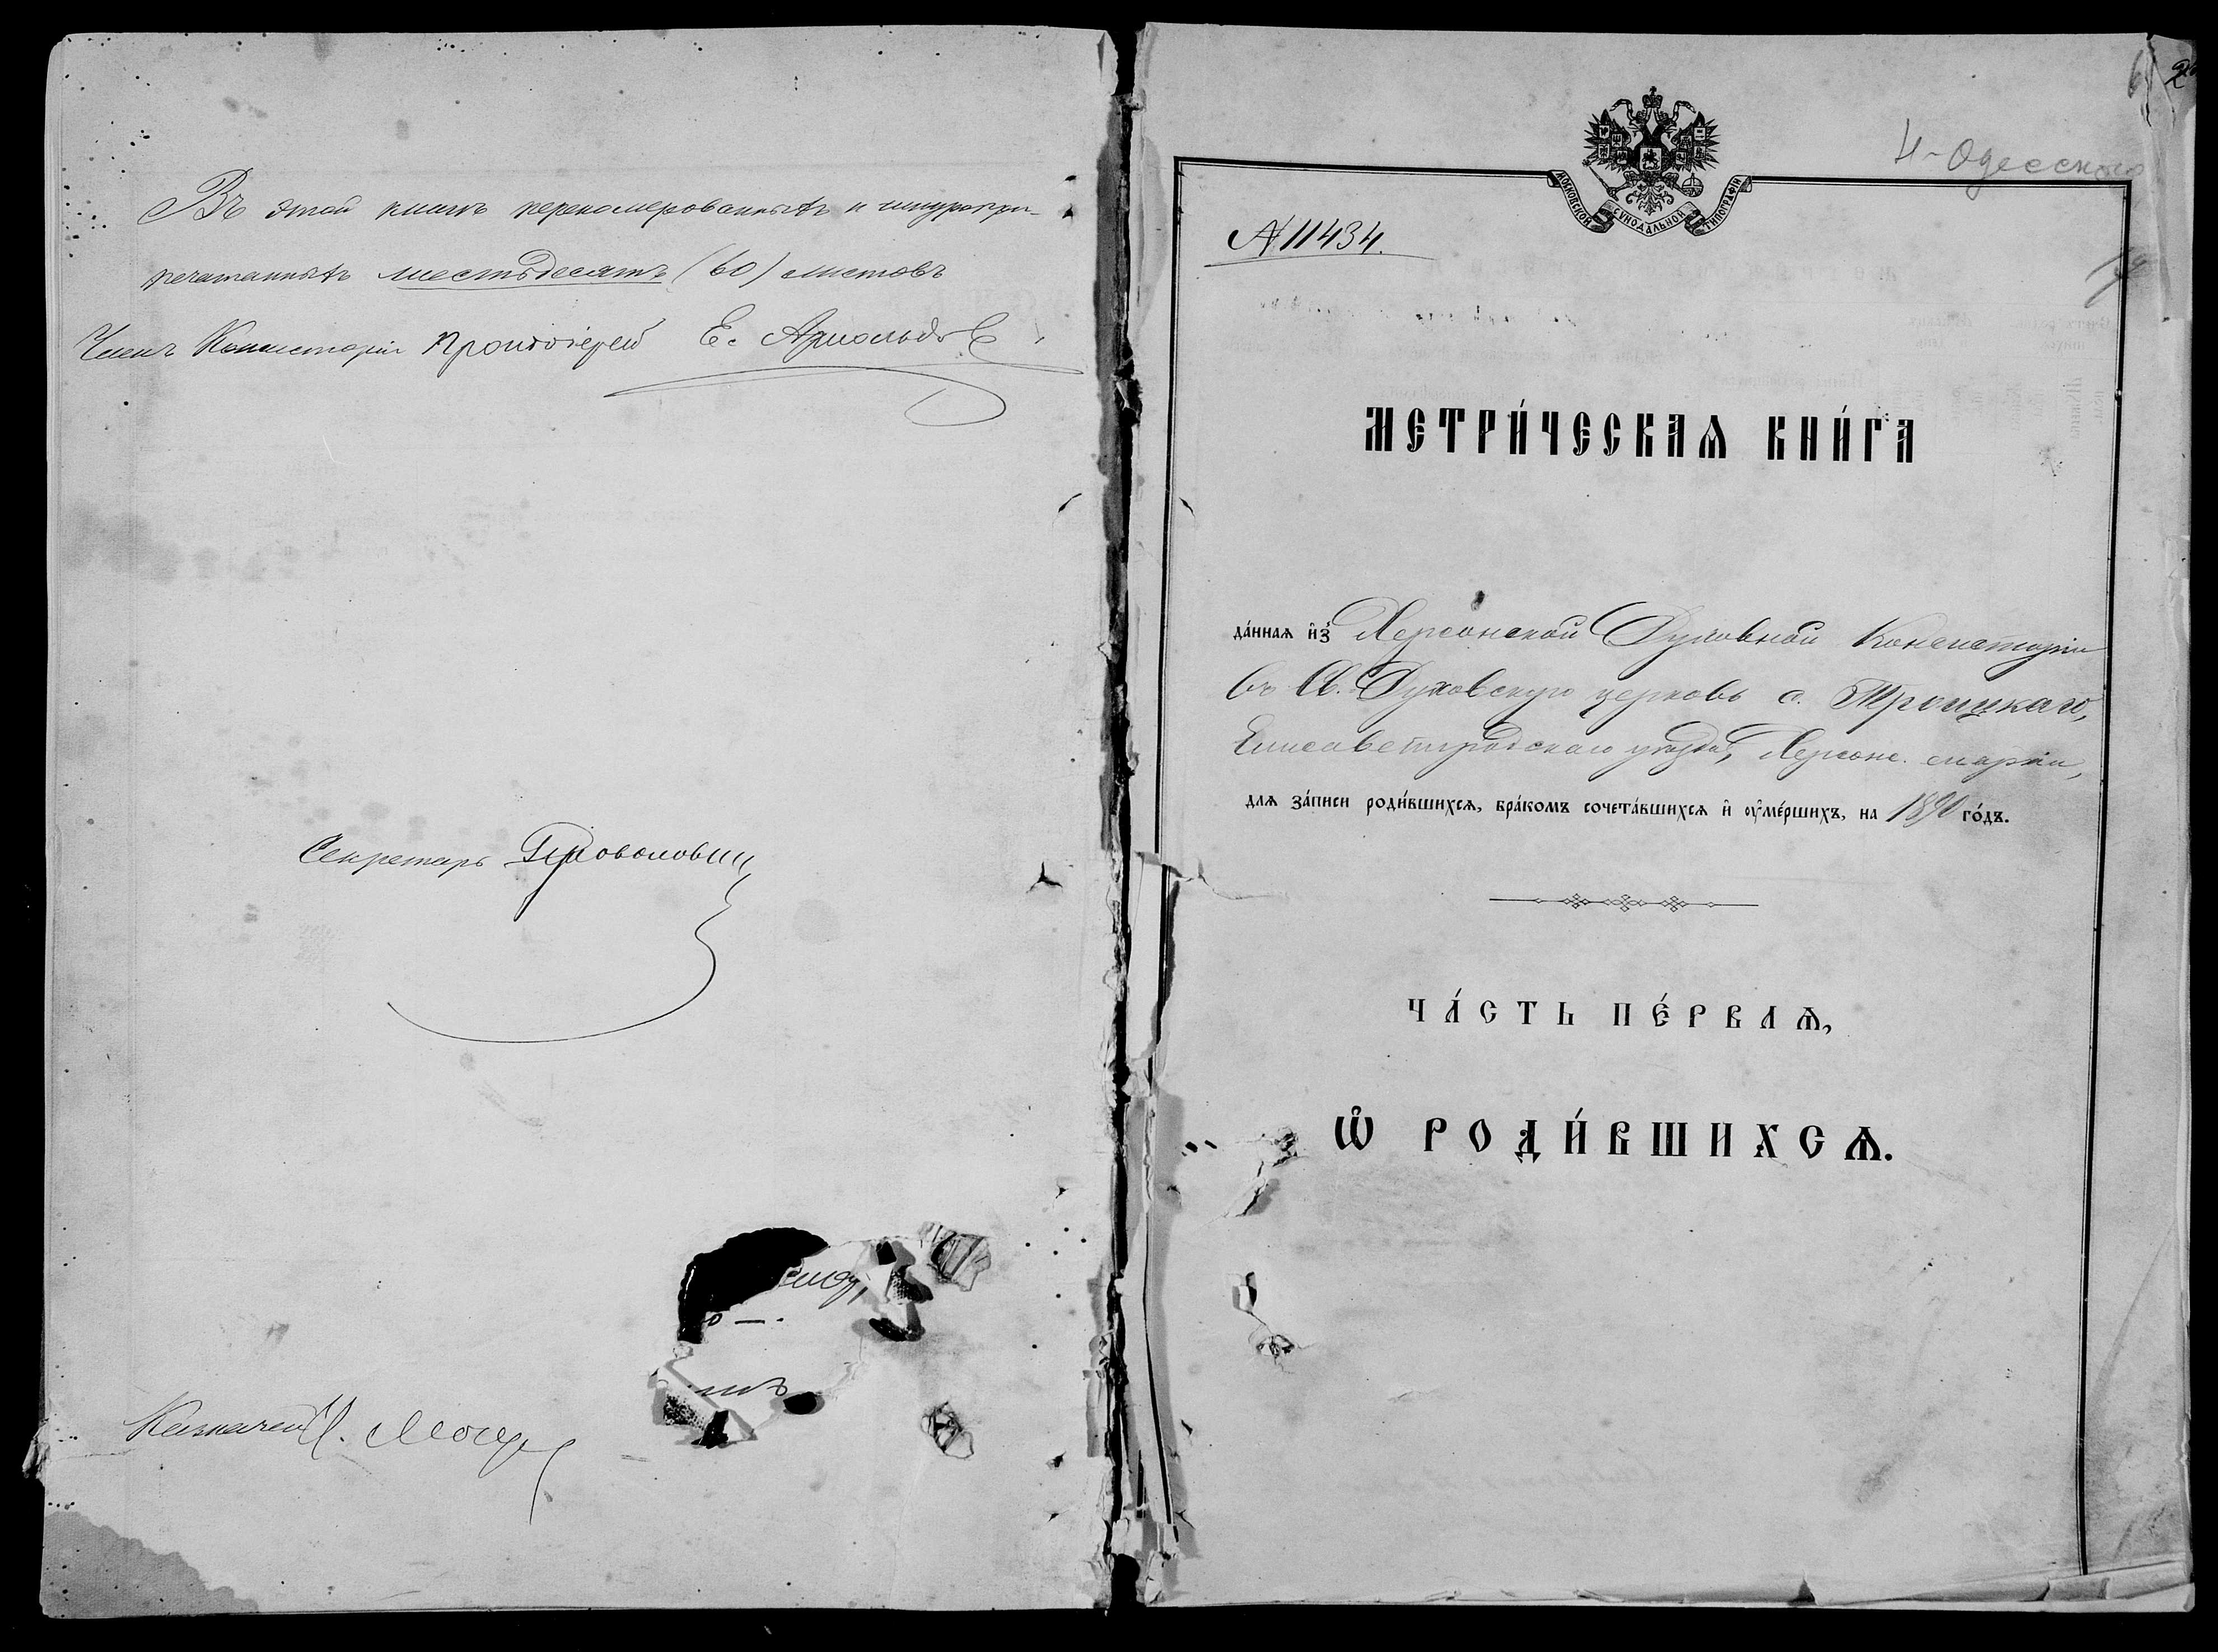 Въ этой книгѣ перенумерованныхъ и шнуропри-
печатанныхъ шестьдесятъ (60) листовъ
Членъ Консисторіи Протоіерей Е. Арнольдовъ
Секретарь
Казначей
N 11434.
Н-Одесского
МОСКОВСКОЙ СѴНОДАЛЬНОЙ ТИПОГРАФІИ
МЕТРИ́ЧЕСКАѦ КНИ́ГА
да́ннаѧ и҆з̾ Херсонской Духовной Консисторіи
въ Св. Духовскую церковь с. Троицкаго,
Елисаветградскаго уѣзда, Херсонс. епархіи,
длѧ за́писи роди́вшихсѧ, бра́комъ сочета́вшихсѧ и҆ ᲂу҆ме́ршихъ, на 1890 го́дъ.
ЧА́СТЬ ПЕ́РВАѦ,
Ѡ҆ РОДИ́ВШИХСѦ.